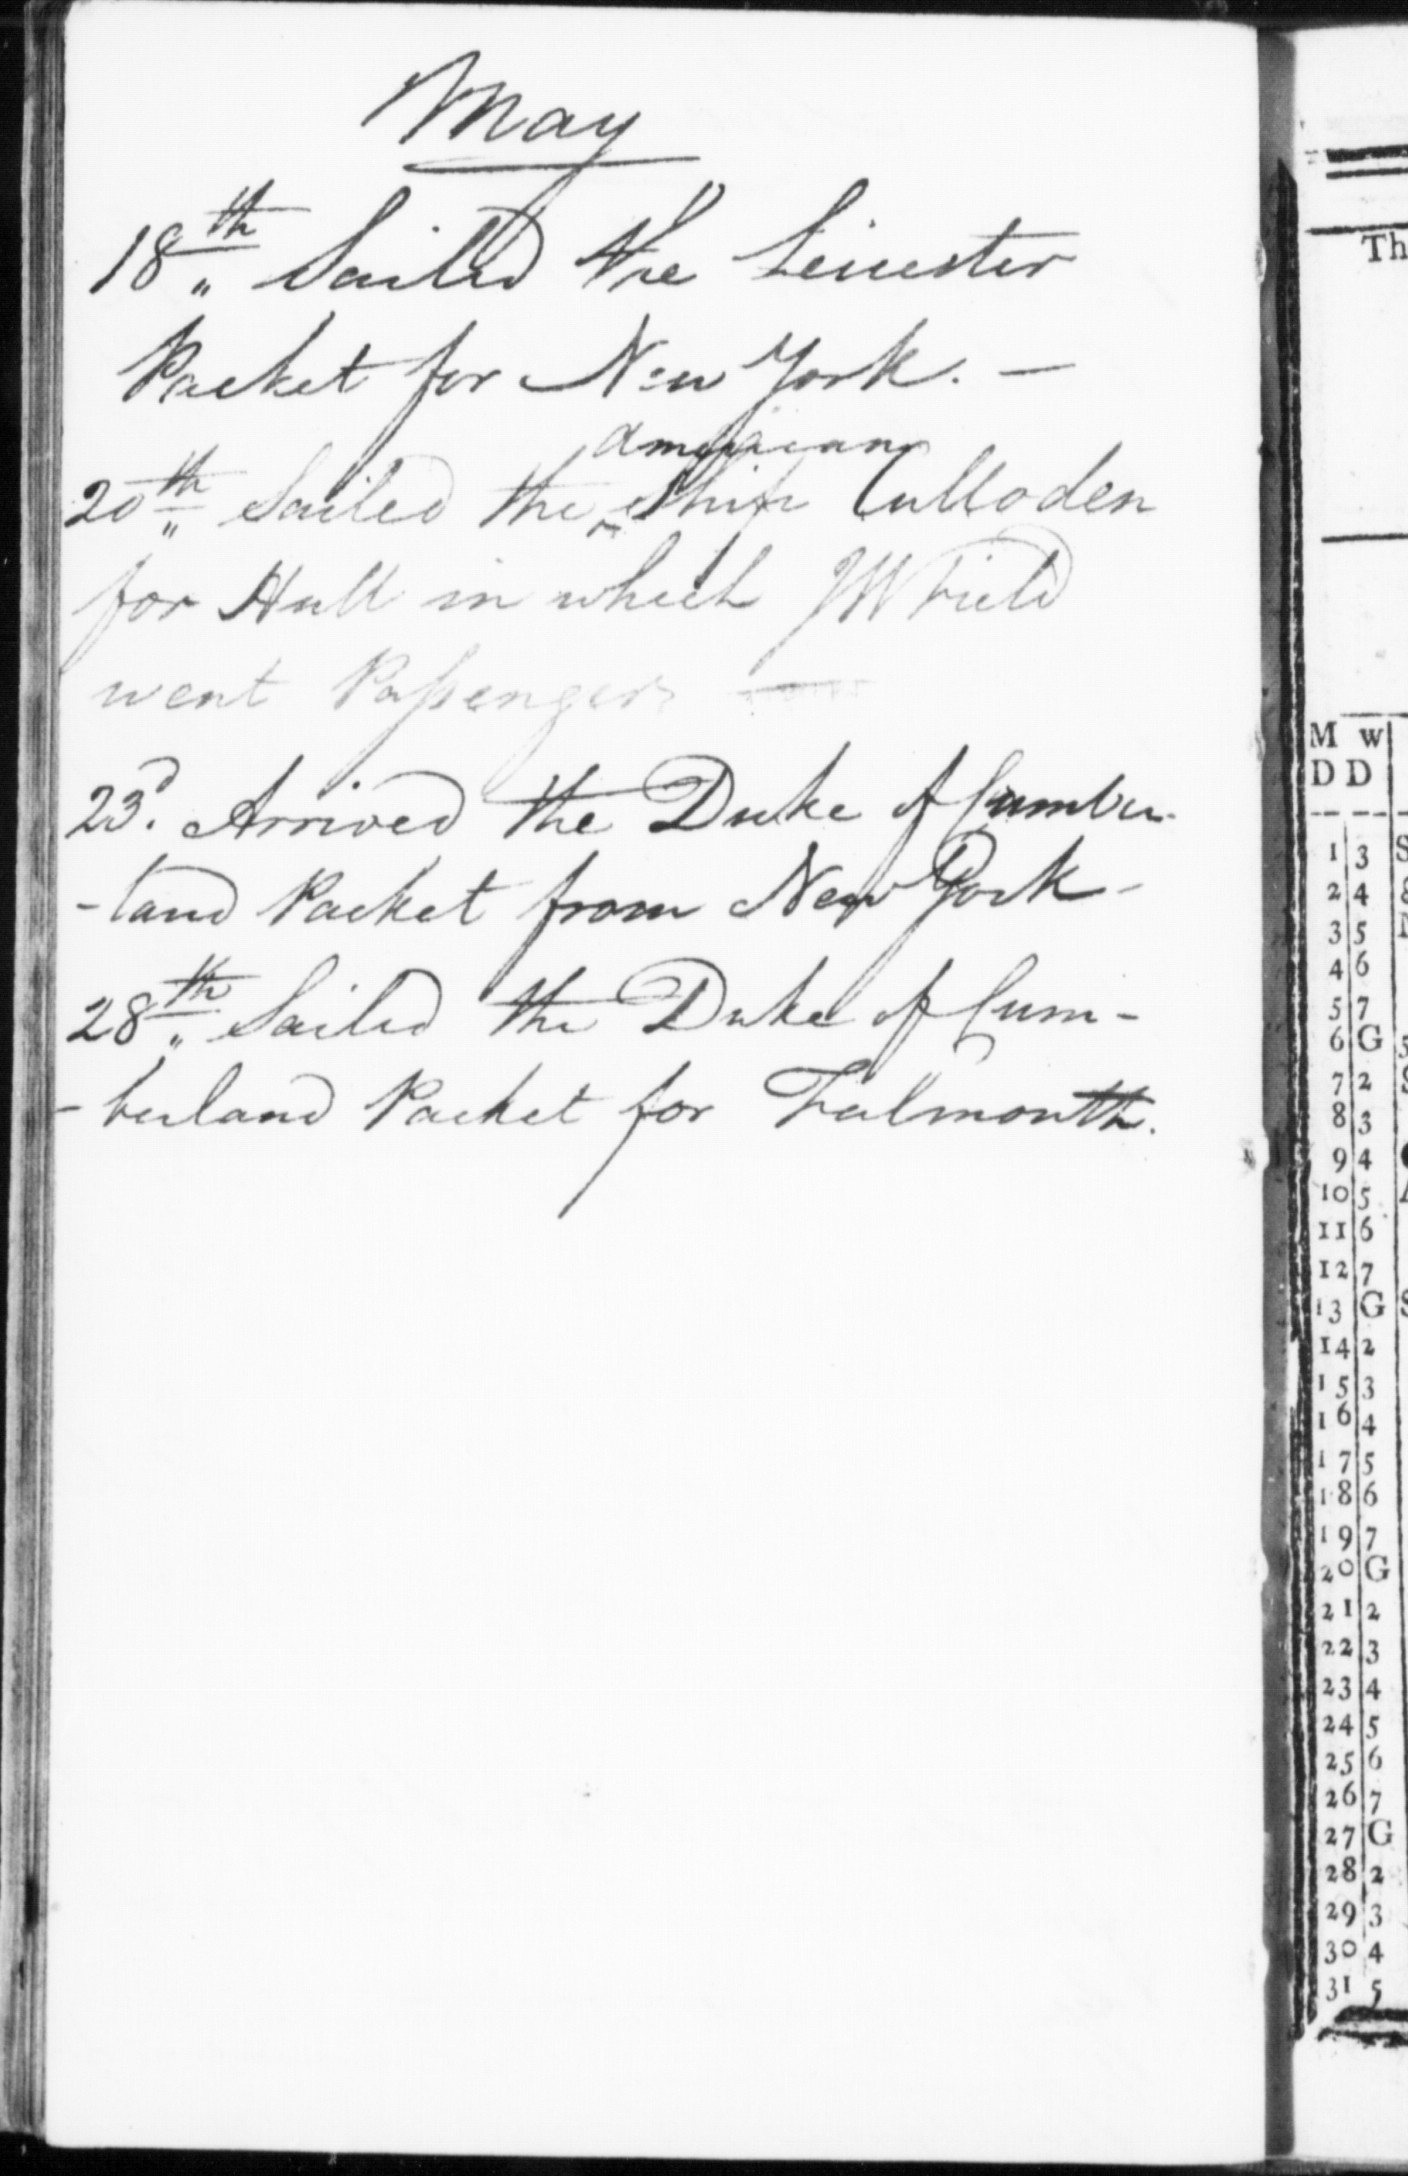 May
18th Sailed the Leicester
Packet for New York. —
american
20th Sailed the ^ Ship Culloden
for Hull in which JW Field
went Passenger
23d. Arrived the Duke of Cumber-
-land Packet from New York -
28th Sailed the Duke of Cum-
-berland Packet for Falmouth.
Th
M W
D D
1 3 S
2 4
3 5
4 6
5 7
6 G
7 2 S
8 3
9 4
10 5
11 6
12 7
13 G S
14 2
15 3
16 4
17 5
18 6
19 7
20 G
21 2
22 3
23 4
24 5
25 6
26 7
27 G
28 2
29 3
30 4
31 5